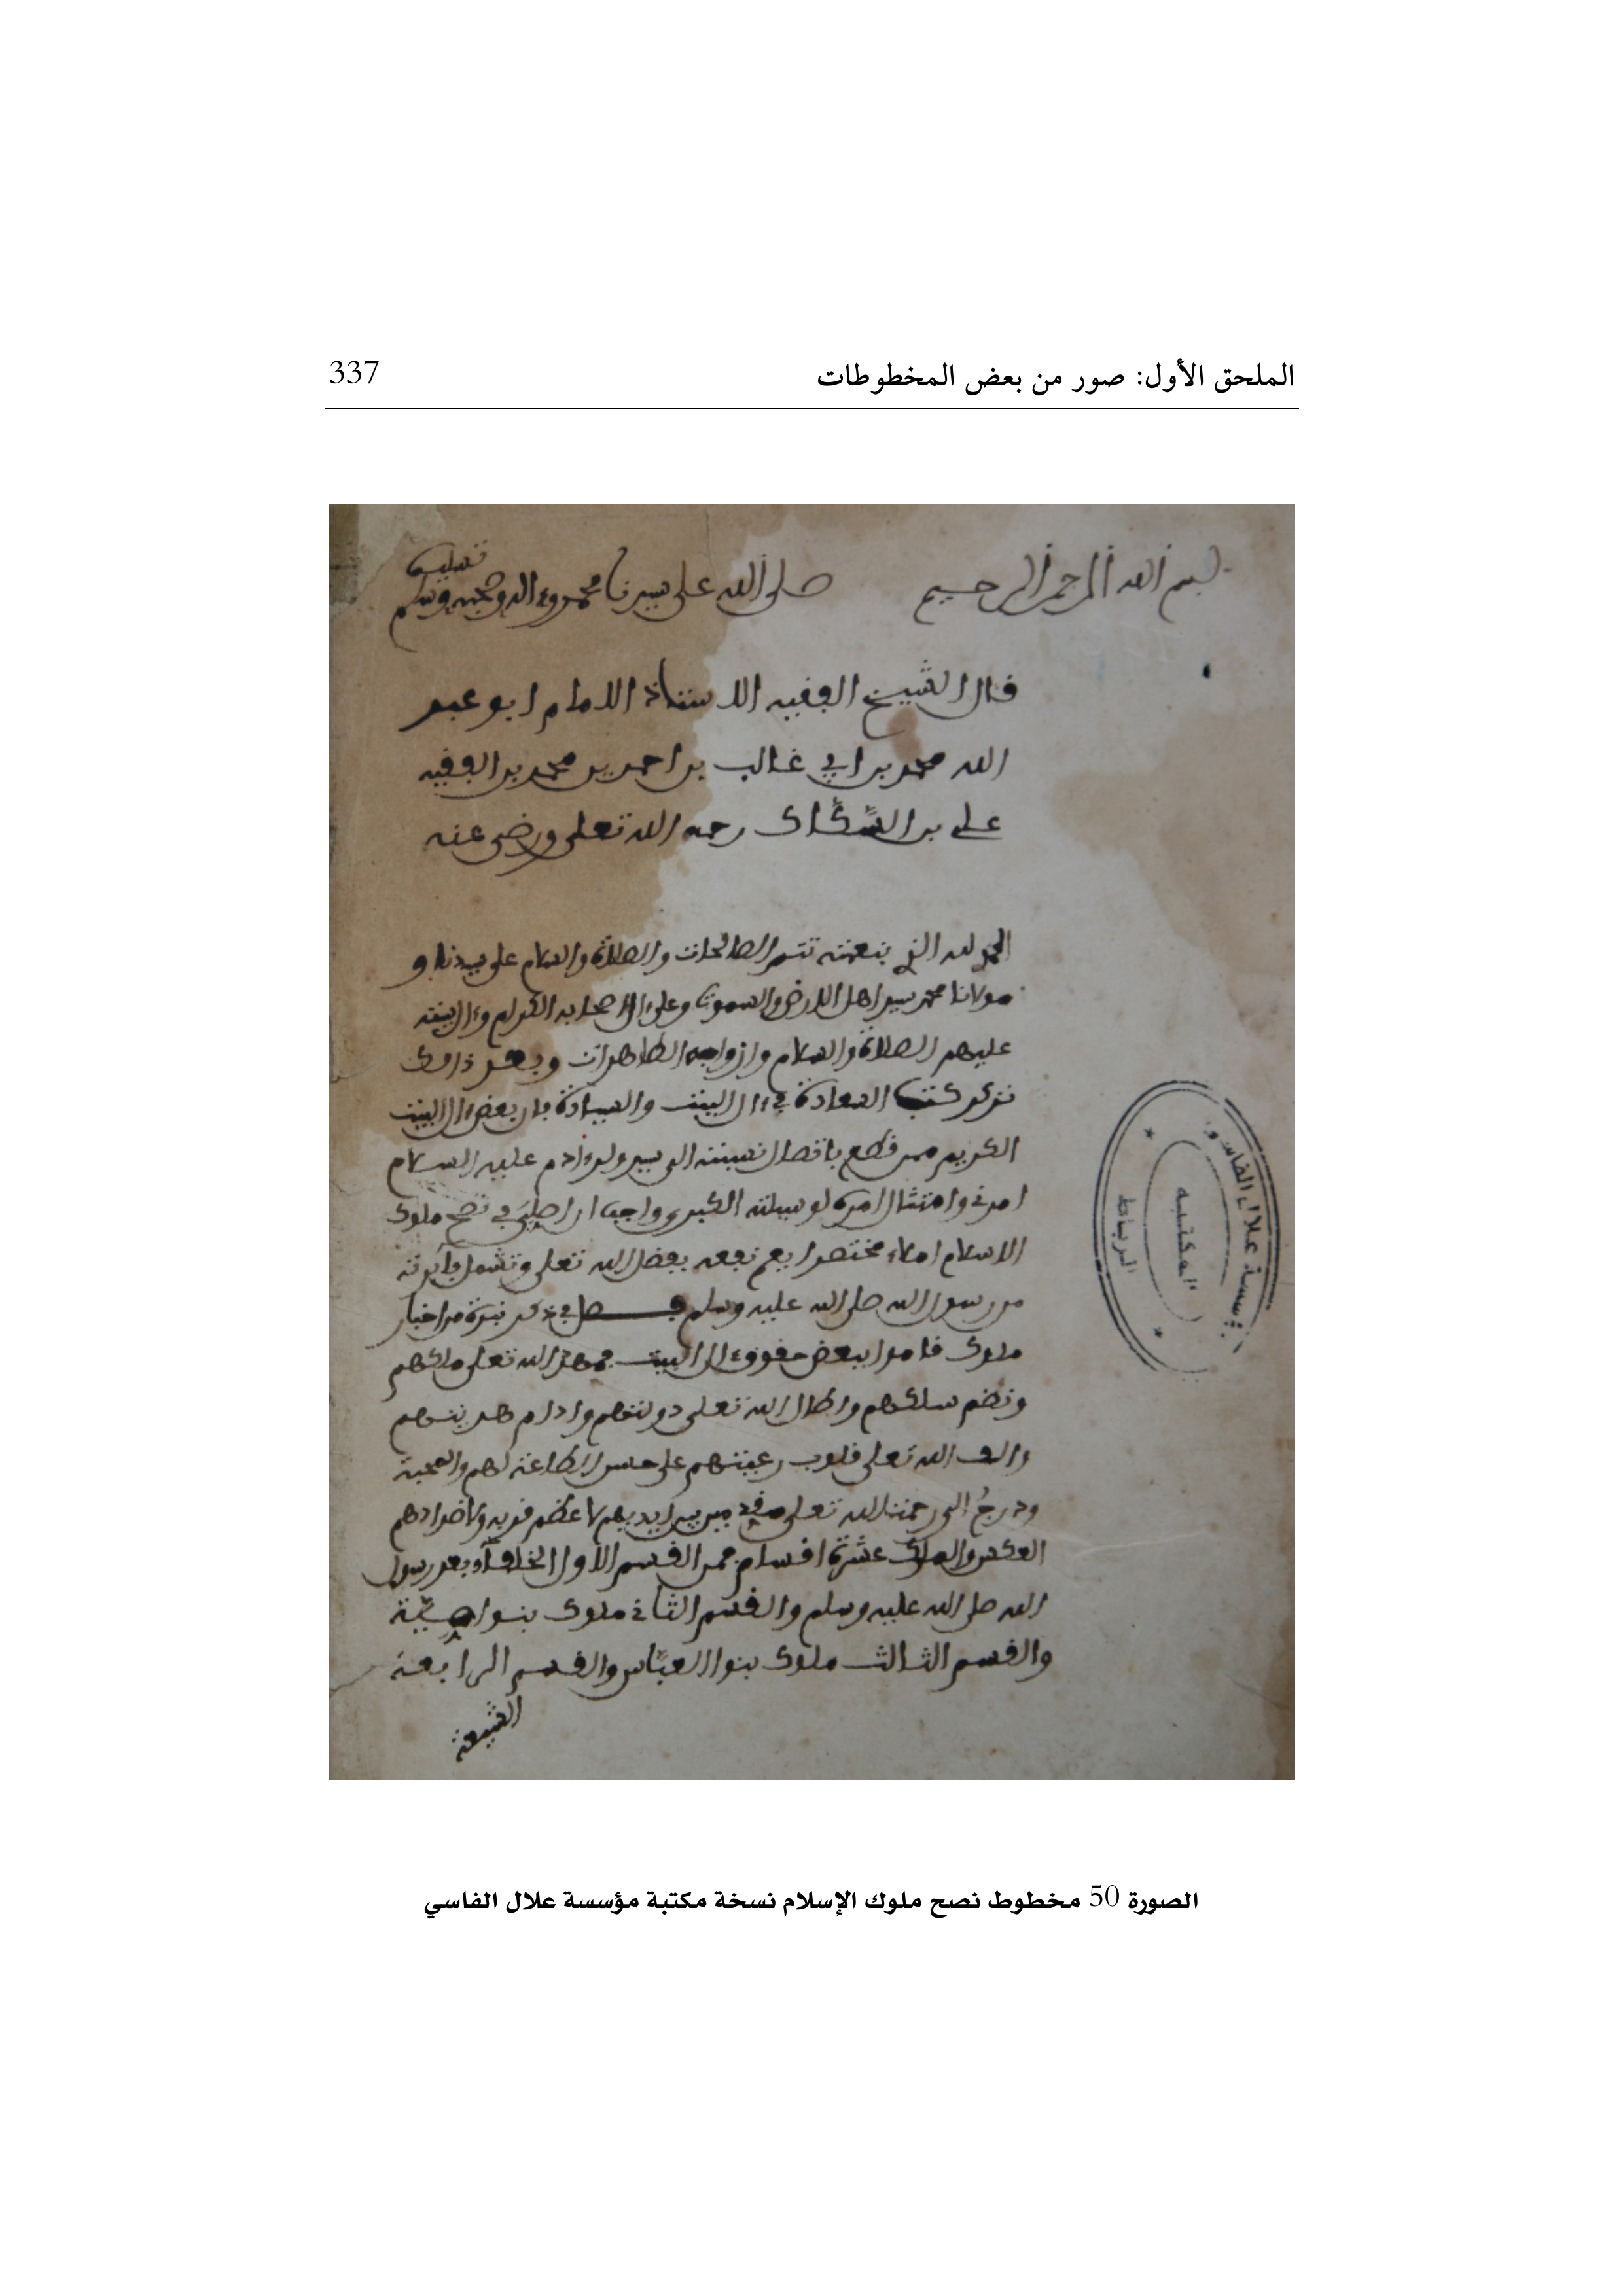 الملحق الأول: صور من بعض المخطوطات 337
بسم الله الرحمن الرحيم صلى الله على سيدنا محمد وءاله وصحبه وسلم تسليما
قال الشيخ الفقيه الاستاذ الامام ابو عبد
الله محمد بن ابي غالب بن احمد بن محمد بن الفقيه
علي بن السكاك رحمه الله تعلى ورضي عنه
الحمد لله الذي بنعمته تتم الصالحات والصلاة والسلام على سيدنا و
مولانا محمد سيد اهل الارض والسموات وعلى ءال اصحابه الكرام وءال بيته
عليهم الصلاة والسلام وازواجه الطاهرات وبعد
كتب السعادة في ءال البيت والسيادة فان بعض ءال البيت
الكريم ممن قطع باتصال نسبته الى سيد ولد ءادم عليه السلام
امرني وامتثال امره لوسيلته الكبرى واجب ان في نصح ملوك
الاسلام املاء مختصرا يعم نفعه بفضل الله تعلى وتشمل فائدته
من رسول الله صلى الله عليه وسلم فصل في ذكر نبذة من اخبار
ملوك قاموا ببعض حقوق ءال البيت فمهد الله تعلى ملكهم
ونظم سلكهم واطال الله تعلى دولتهم وادام هدنتهم
والف الله تعلى قلوب رعيتهم على حسن الطاعة لهم والمحبة
ودرج الى رحمة الله تعلى من بين ايديهم لاعظم قربه ولاضدادهم
العكس والملوك عشرة اقسام فمن القسم الاول الخلفاء بعد رسول
الله صلى الله عليه وسلم والقسم الثاني ملوك بنوا امية
والقسم الثالث ملوك بنوا العباس والقسم الرابعة
الشيعة
مؤسسة علال الفاسي
المكتبة
الرباط
الصورة 50 مخطوط نصح ملوك الإسلام نسخة مكتبة مؤسسة علال الفاسي